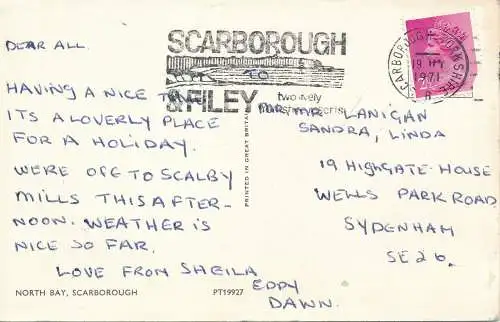 DEAR ALL.
HAVING A NICE TIME
ITS A LOVERLY PLACE
FOR A HOLIDAY.
WERE OFF TO SCALBY
MILLS THIS AFTER-
NOON. WEATHER IS
NICE SO FAR.
LOVE FROM SHEILA
EDDY
DAWN.
NORTH BAY, SCARBOROUGH
PT19927
PRINTED IN GREAT BRITAIN
SCARBOROUGH
TO
FILEY
two
SCARBOROUGH
1971
LANIGAN
SANDRA, LINDA
19 HIGHGATE-HOUSE
WELLS PARK ROAD
SYDENHAM
SE26.